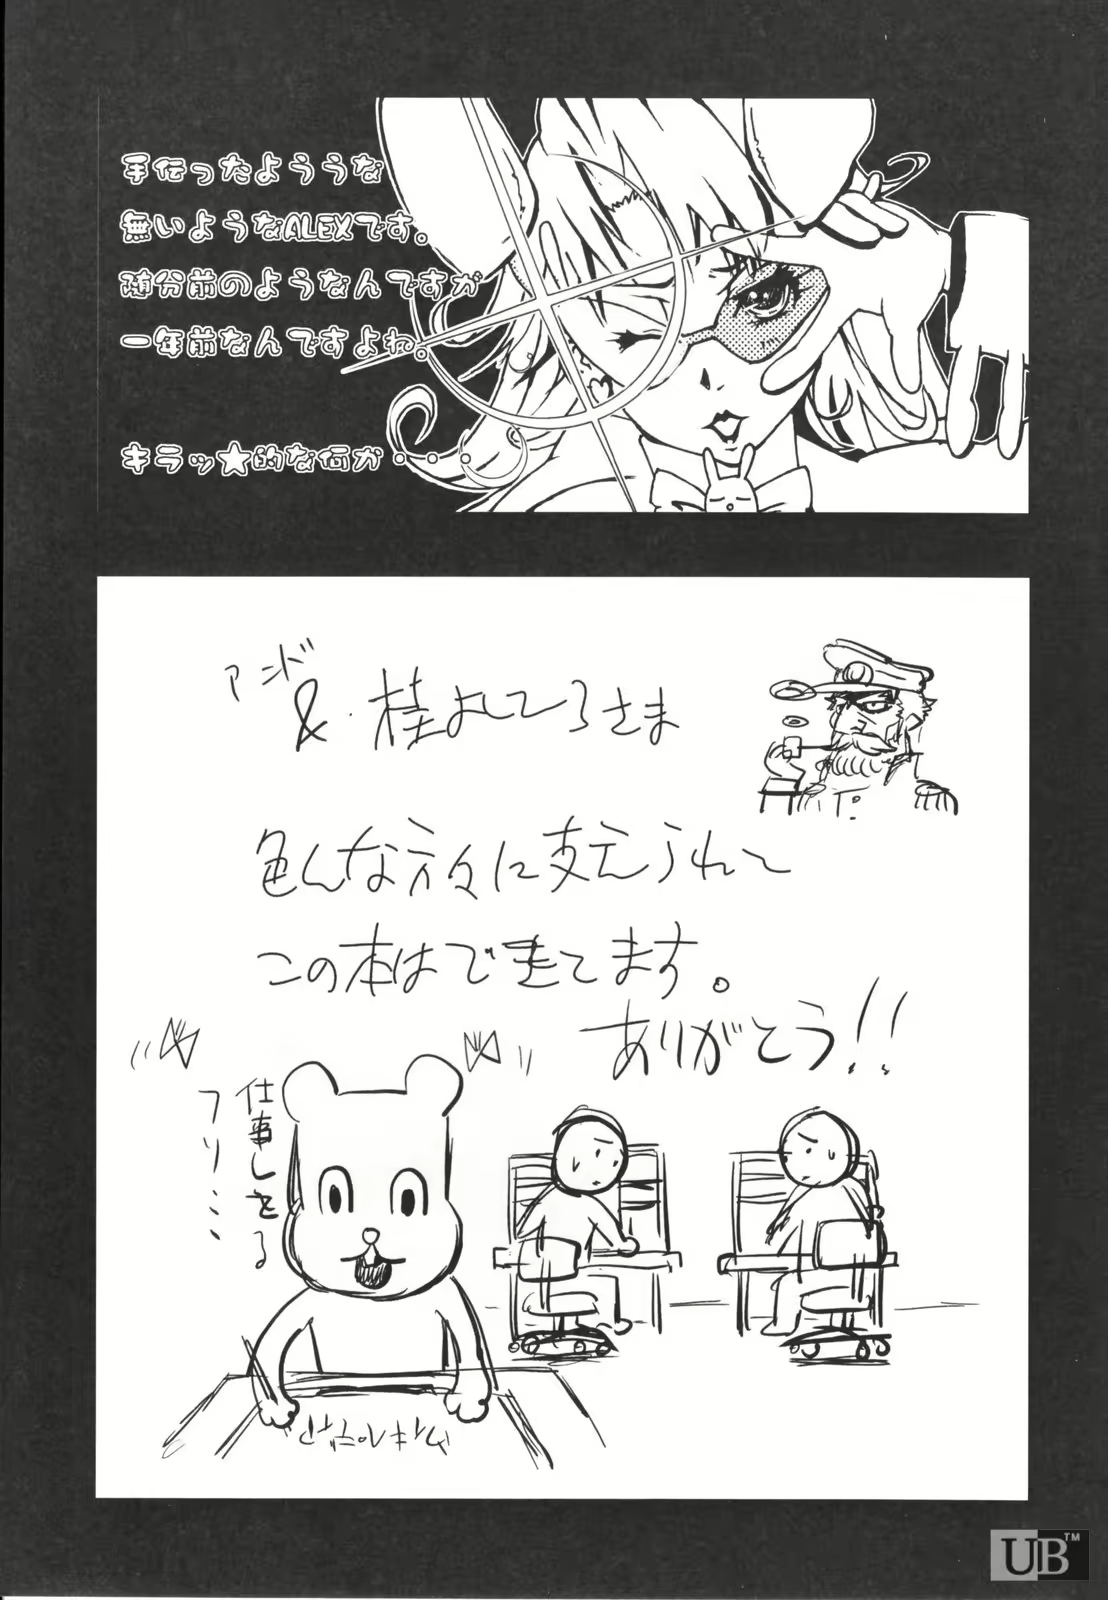 手伝ったようような
無いようなALEXです。
随分前のようなんですが
一年前なんですよね。
キラッ★的な何か・・・
アンド
&・桂よしひろさま
色んな方々に支えられて
この本はできてます。
ありがとう!!
仕事してる
フリ…
UB™